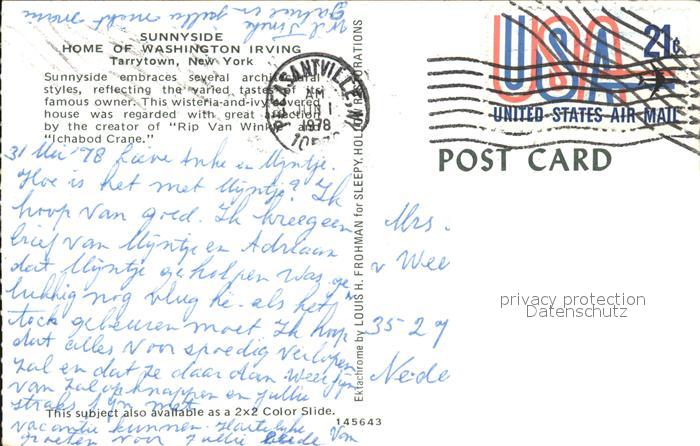 SUNNYSIDE
HOME OF WASHINGTON IRVING
Tarrytown, New York
Sunnyside embraces several architectural
styles, reflecting the varied tastes of its
famous owner. This wisteria-and-ivy-covered
house was regarded with great affection
by the creator of "Rip Van Winkle" and
"Ichabod Crane."
31 Mei '78 Lieve Anke en Mijntje.
Hoe is het met Mijntje? Ik
hoop van goed. Ik kreeg een
brief van Mijntje en Adriaan
dat Mijntje geholpen was ge-
lukkig nog vlug he. als het
toch gebeuren moet Ik hoop
dat alles voor spoedig verlopen
zal en dat ze daar dan weer fijn
van zal opknappen en jullie
straks fijn met
vacantie kunnen. Hartelijke
groeten voor jullie beide van
This subject also available as a 2x2 Color Slide.
145643
Ektachrome by LOUIS H. FROHMAN for SLEEPY HOLLOW RESTORATIONS
PLEASANTVILLE, NY
AM
JUN 1
1978
USA 21c
UNITED STATES AIR MAIL
POST CARD
Mrs.
v Wee
35 27
Nede
privacy protection
Datenschutz